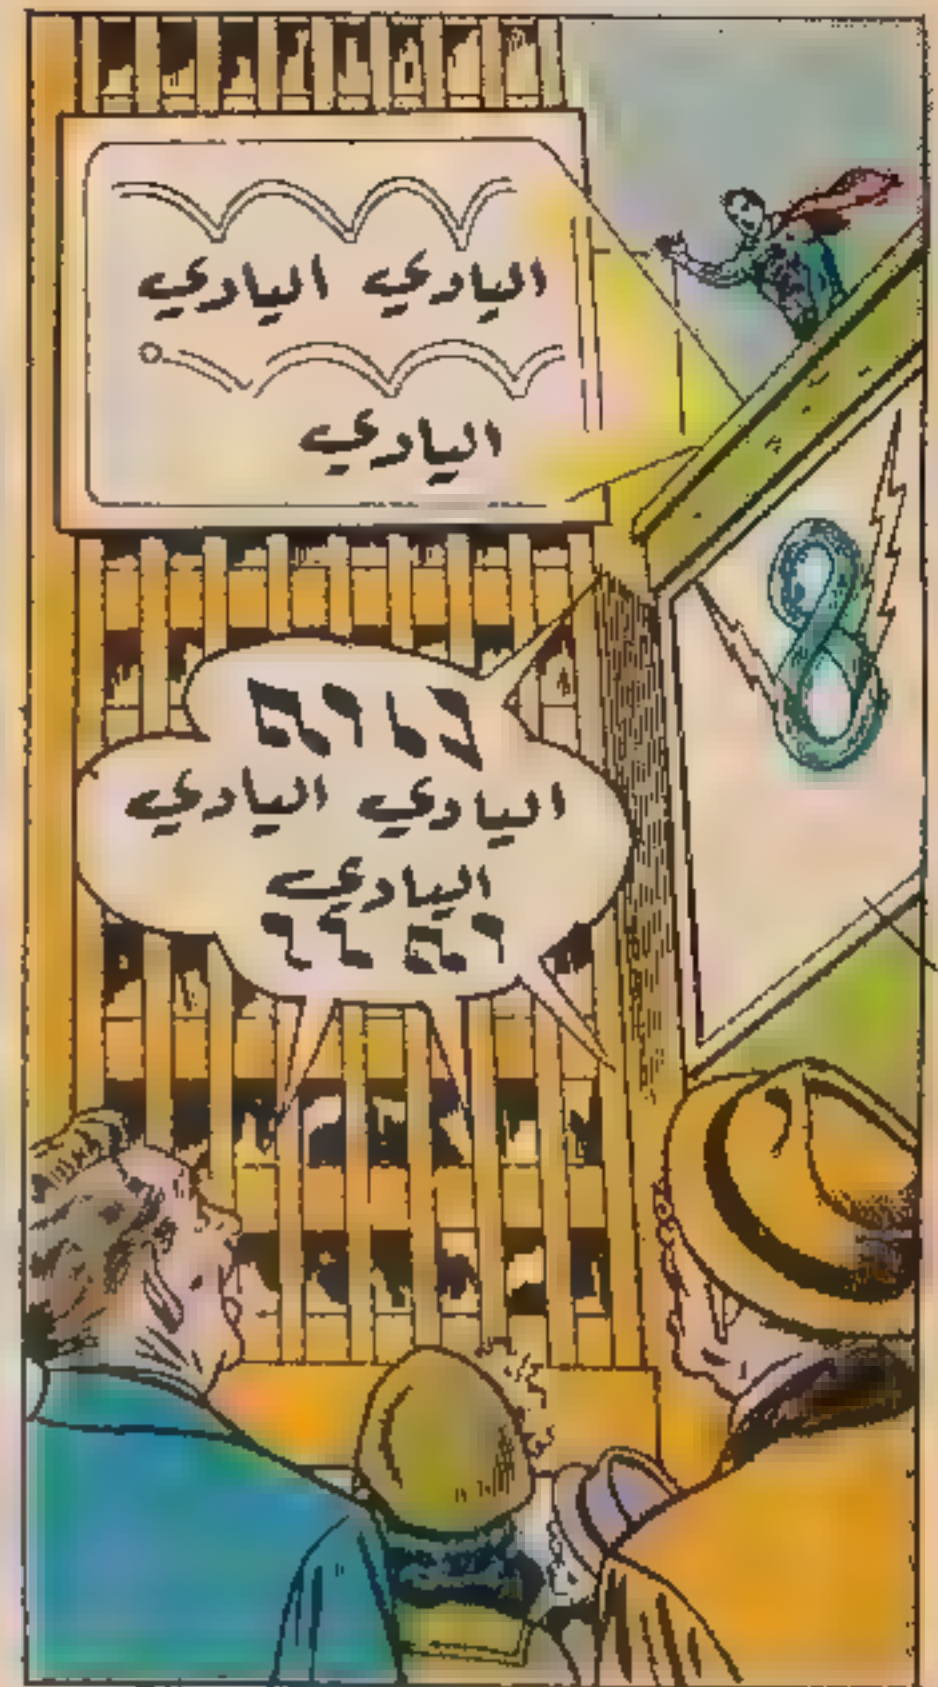 اليادي اليادي
اليادي
اليادي اليادي
اليادي
8